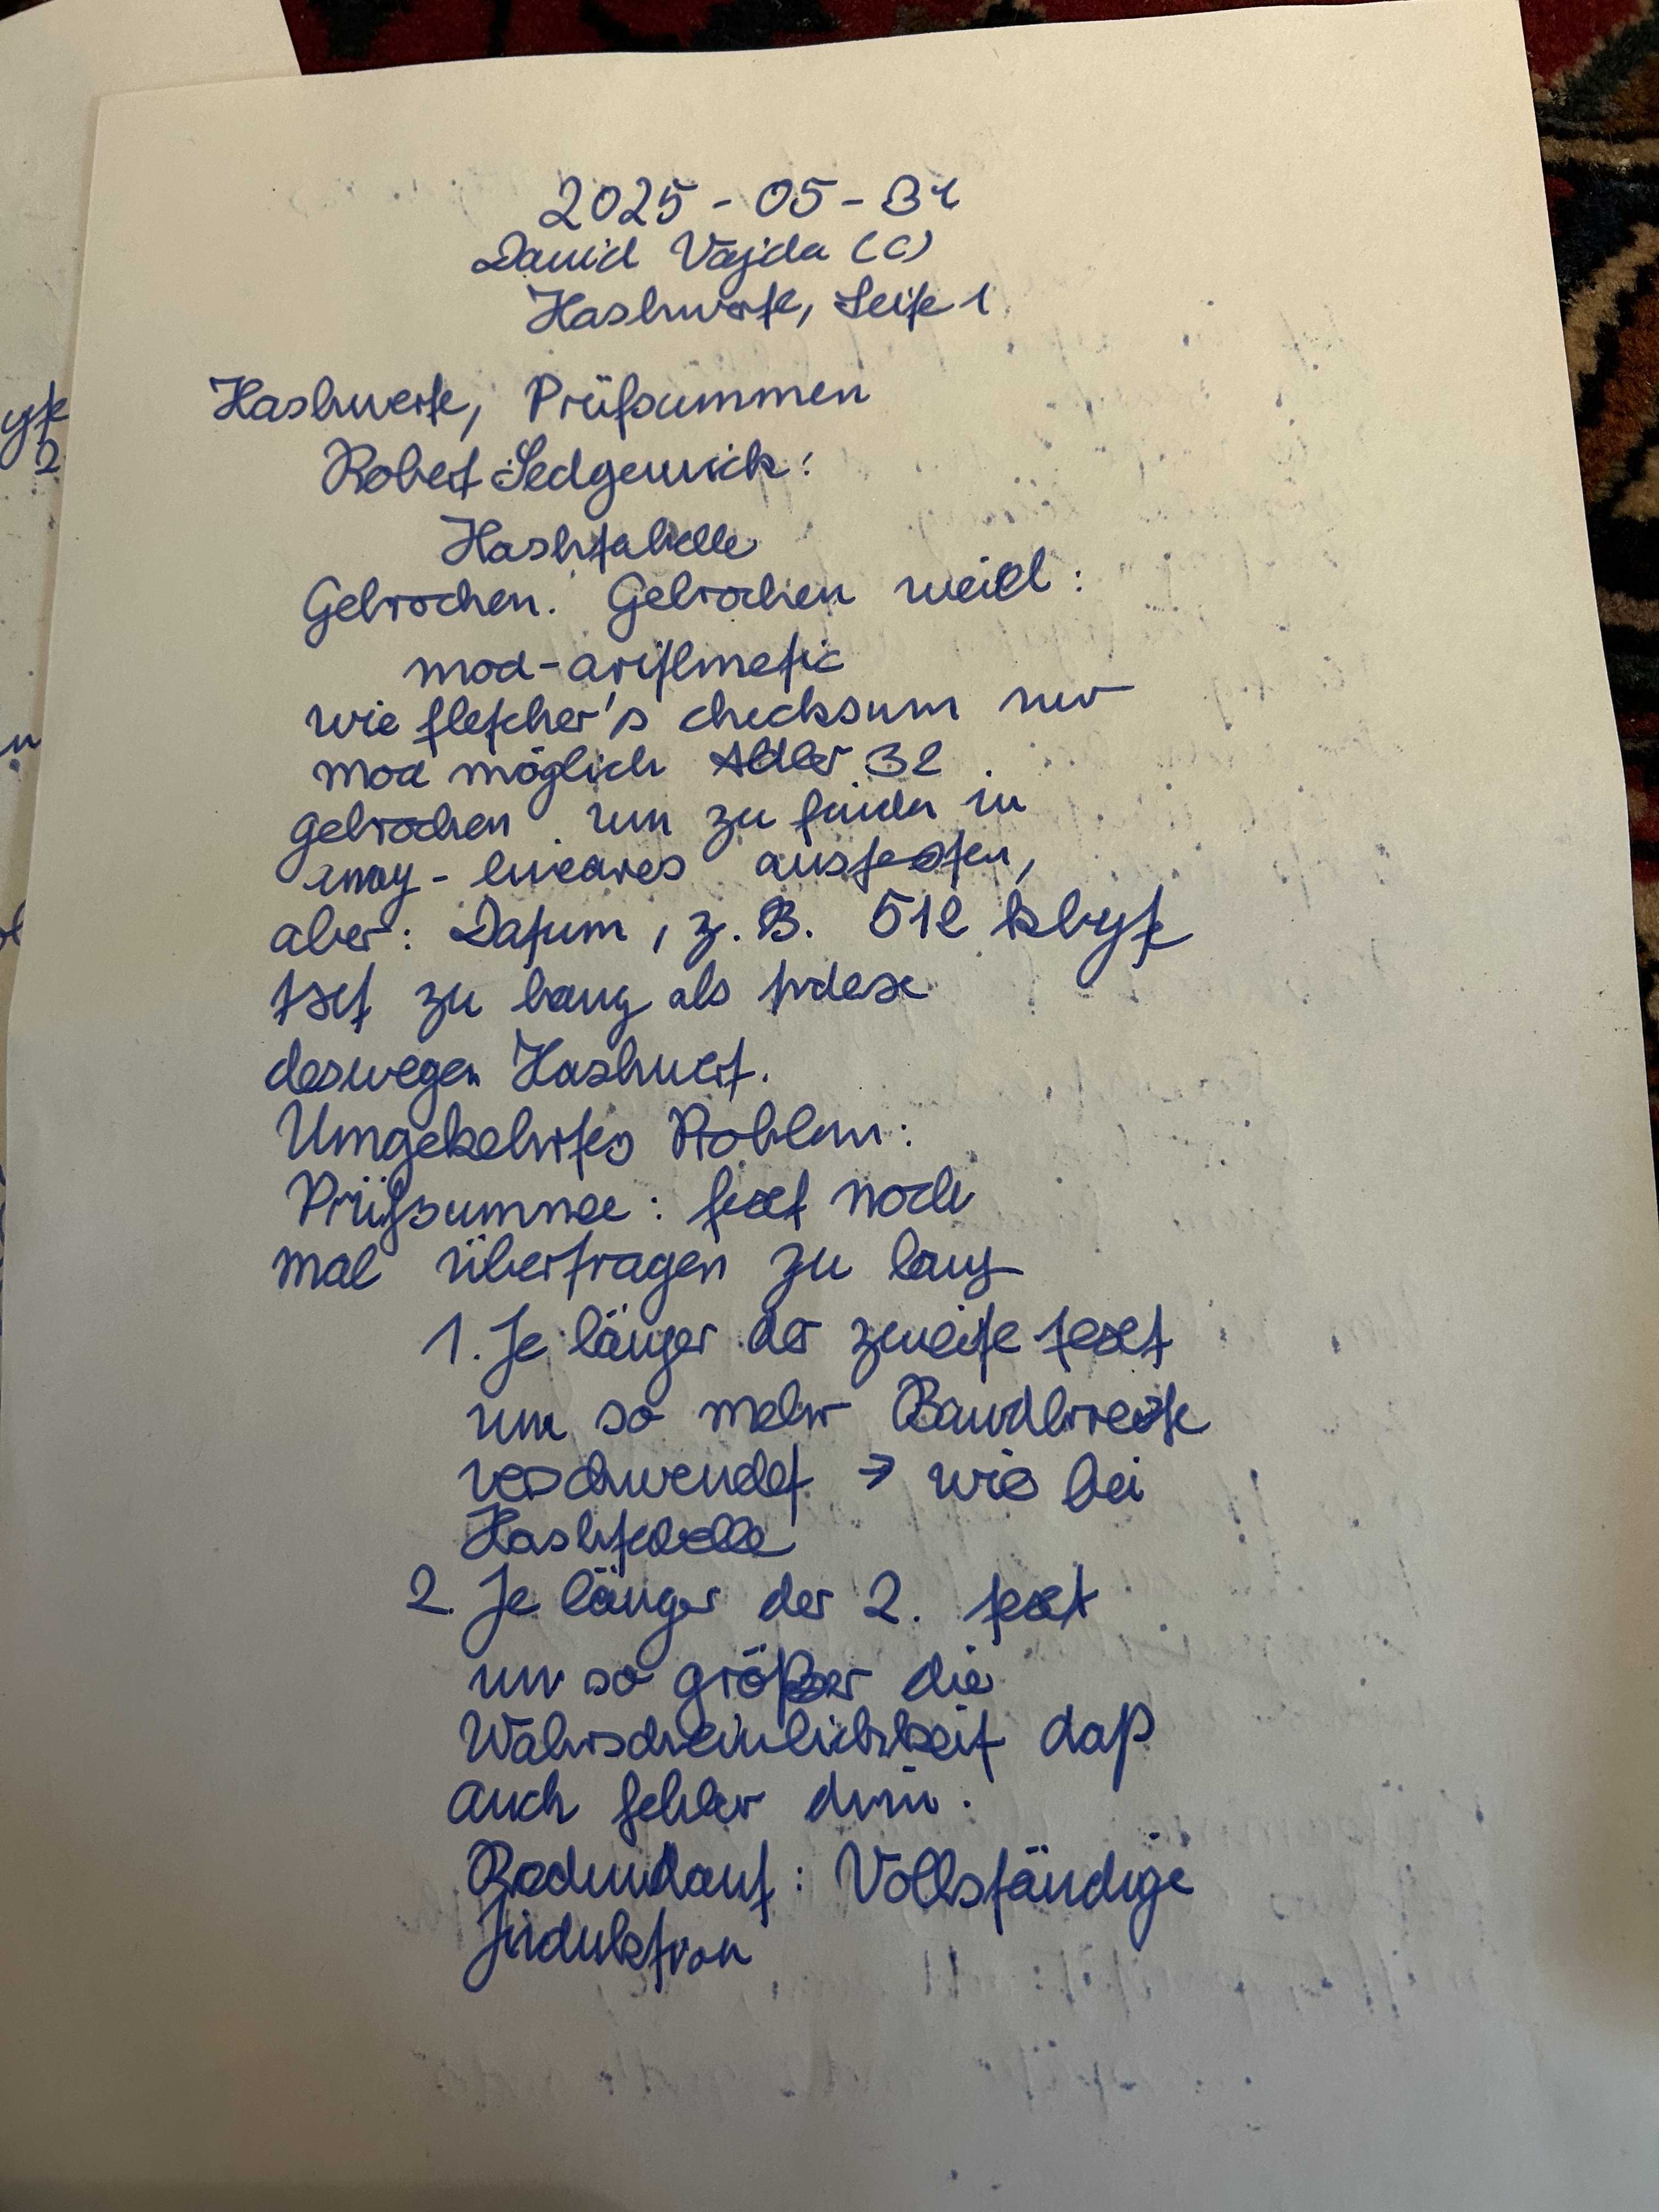 2025-05-31
David Vajda (C)
Hashwerte, Seite 1
Hashwerte, Prüfsummen
Robert Sedgewick:
Hashtabelle
Gebrochen. Gebrochen weil:
mod-arithmetic
wie fletcher's checksum nur
mod möglich Adler 32
gebrochen um zu finden in
array-lineares austesten,
aber: Datum, z.B. 512 kbyte
Ist zu lang als Index
deswegen Hashwert.
Umgekehrtes Problem:
Prüfsumme: text noch
mal übertragen zu lang
1. Je länger der zweite text
um so mehr Bandbreite
verschwendet → wie bei
Hashtabelle
2. Je länger der 2. text
um so größer die
Wahrscheinlichkeit daß
auch fehler drin.
Redundant: Vollständige
Induktion
yte
2